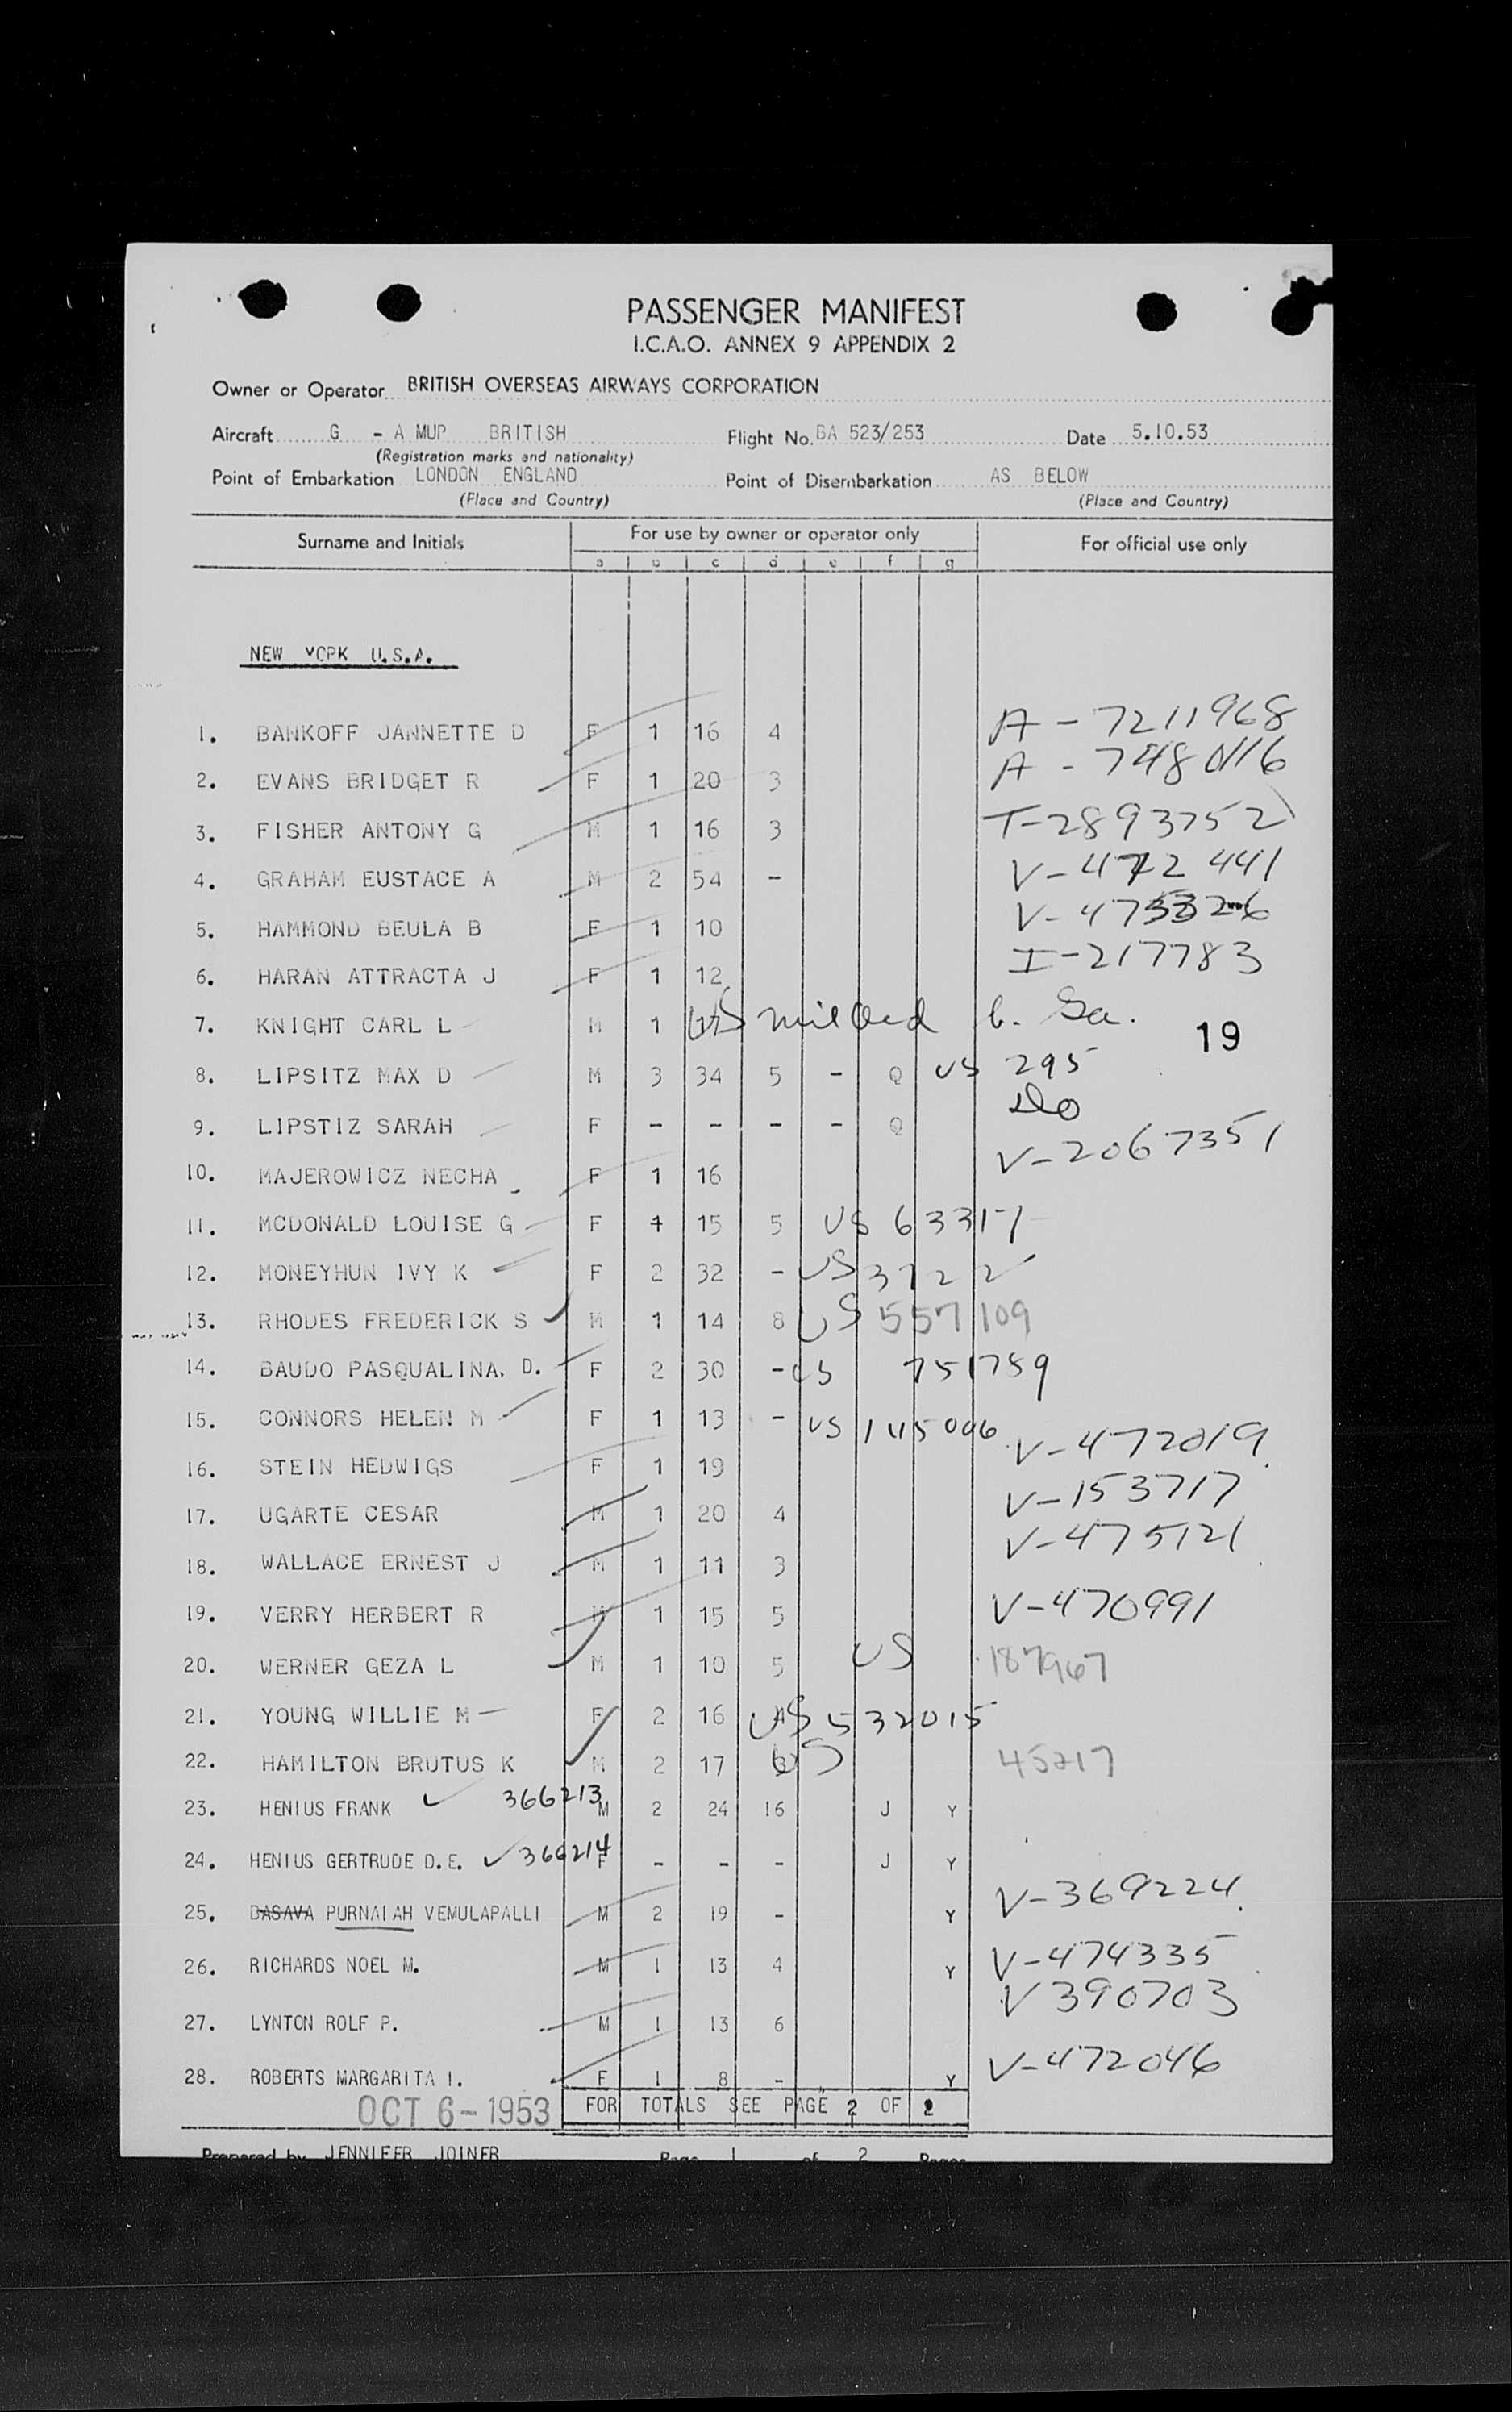 PASSENGER MANIFEST
I.C.A.O. ANNEX 9 APPENDIX 2
Owner or Operator BRITISH OVERSEAS AIRWAYS CORPORATION
Aircraft G - A MUP BRITISH Flight No. BA 523/253 Date 5.10.53
(Registration marks and nationality)
Point of Embarkation LONDON ENGLAND Point of Disembarkation AS BELOW
(Place and Country) (Place and Country)
Surname and Initials For use by owner or operator only For official use only
a b c d e f g
NEW YORK U.S.A.
1. BANKOFF JANNETTE D F 1 16 4 A-7211968
2. EVANS BRIDGET R F 1 20 3 A-7480116
3. FISHER ANTONY G M 1 16 3 T-2893752
4. GRAHAM EUSTACE A M 2 54 - V-472441
5. HAMMOND BEULA B F 1 10 V-475326
6. HARAN ATTRACTA J F 1 12 I-217783
7. KNIGHT CARL L M 1 17 US
19
8. LIPSITZ MAX D M 3 34 5 - Q US 295
9. LIPSTIZ SARAH F - - - - Q Do
10. MAJEROWICZ NECHA F 1 16 V-2067351
11. MCDONALD LOUISE G F 1 15 5 US 63317
12. MONEYHUN IVY K F 2 32 - US 3722
13. RHODES FREDERICK S M 1 14 8 US 557109
14. BAUDO PASQUALINA. D. F 2 30 - US 751789
15. CONNORS HELEN M F 1 13 - US 145006
16. STEIN HEDWIGS F 1 19 V-472019
17. UGARTE CESAR M 1 20 4 V-153717
18. WALLACE ERNEST J M 1 11 3 V-475121
19. VERRY HERBERT R M 1 15 5 V-470991
20. WERNER GEZA L M 1 10 5 US 187967
21. YOUNG WILLIE M F 2 16 US 532015
22. HAMILTON BRUTUS K M 2 17 3 US 45217
23. HENIUS FRANK 366213 M 2 24 16 J Y
24. HENIUS GERTRUDE D.E. 366214 F - - - J Y
25. BASAVA PURNAIAH VEMULAPALLI M 2 19 - Y V-369224
26. RICHARDS NOEL M. M 1 13 4 Y V-474335
27. LYNTON ROLF P. M 1 13 6 V390703
28. ROBERTS MARGARITA I. F 1 8 - Y V-472046
OCT 6-1953 FOR TOTALS SEE PAGE 2 OF 2
Prepared by JENNIFER JOINER Page 1 of 2 Pages